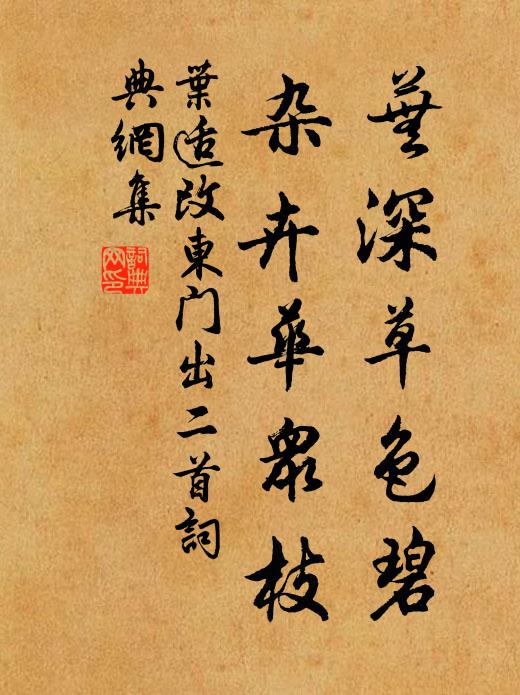 蕪深草色碧
杂卉華眾枝
葉适改東门出二首詞
典網集
詞典網印